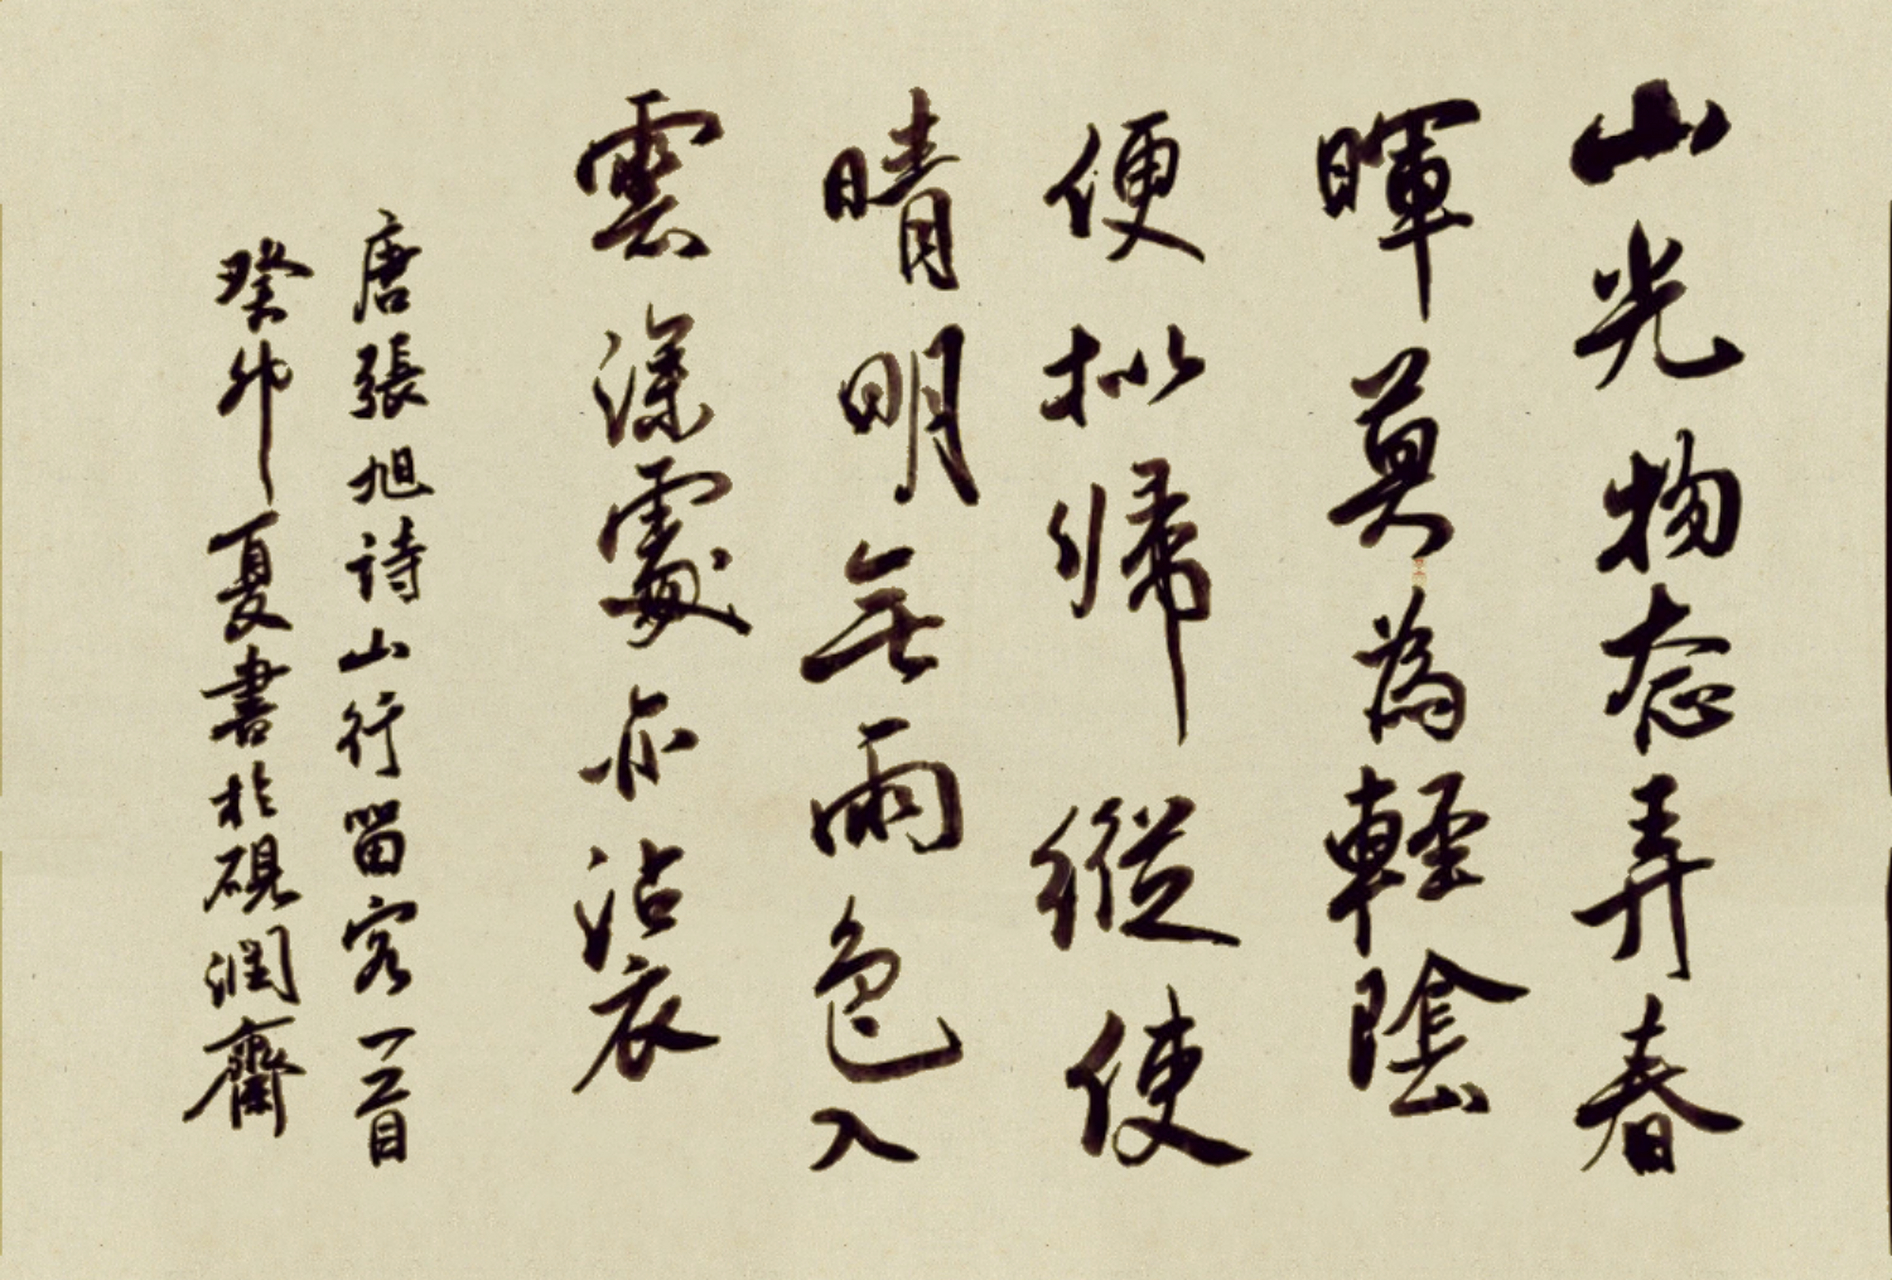 山光物态弄春
暉莫為輕陰
便拟歸縱使
晴明無雨色入
雲深處亦沾衣
唐張旭詩山行留客一首
癸卯夏書於硯潤齋